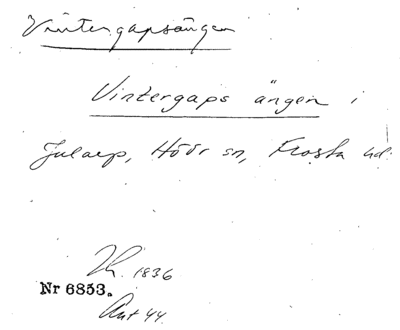 Vintergapsängen
Vintergaps ängen i
Jularp, Höör sn, Frosta hd.
Lh. 1836
Nr 6853.
Ant 44